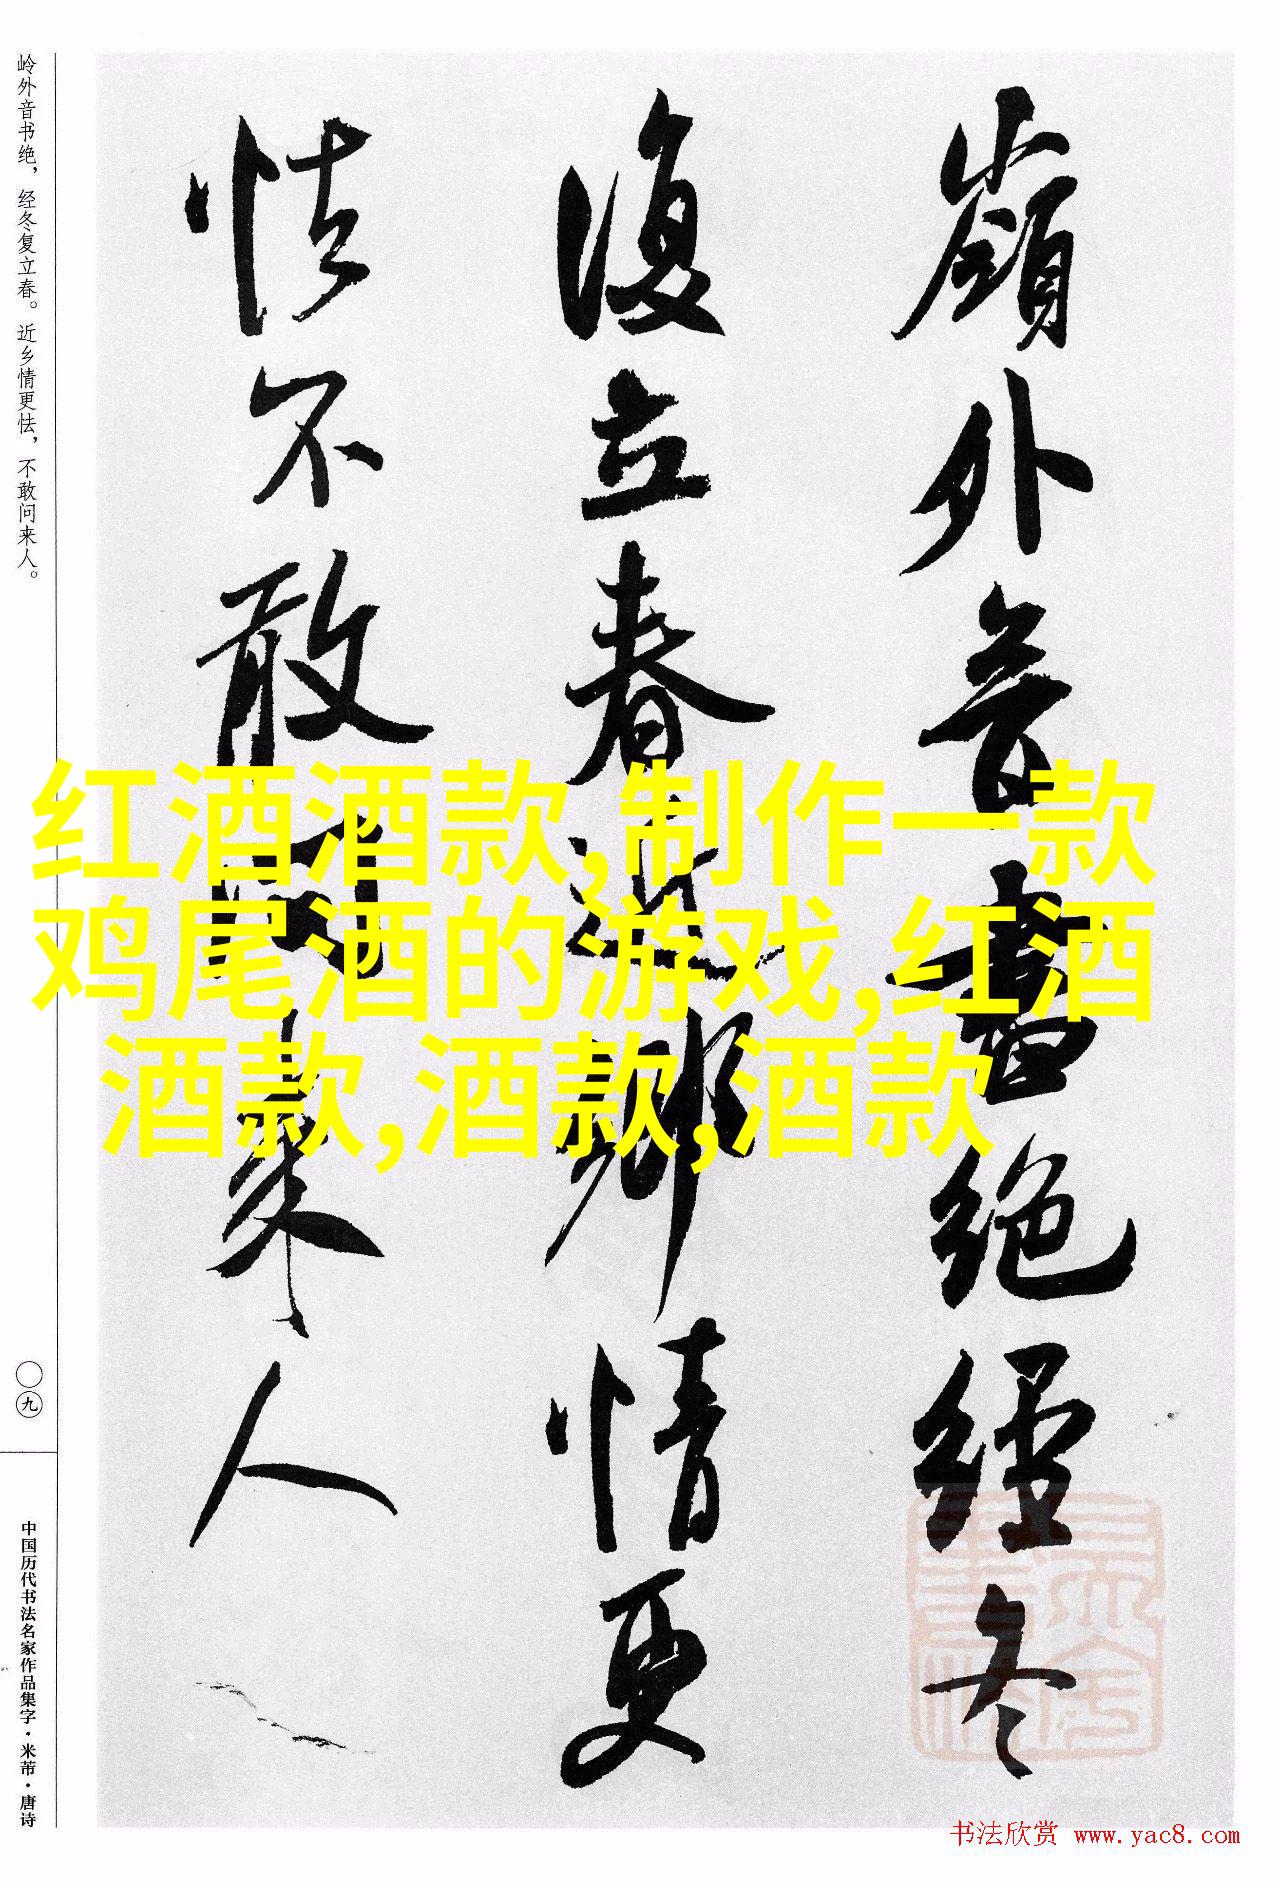 嶺外音書絶經冬
復立春近鄉情更
怯不敢問来人
岭外音书绝，经冬复立春。近乡情更怯，不敢问来人。
〇九
中国历代书法名家作品集字·米芾·唐诗
红酒酒款,制作一款
鸡尾酒的游戏,红酒
酒款,酒款,酒款
书法欣赏 www.yac8.com